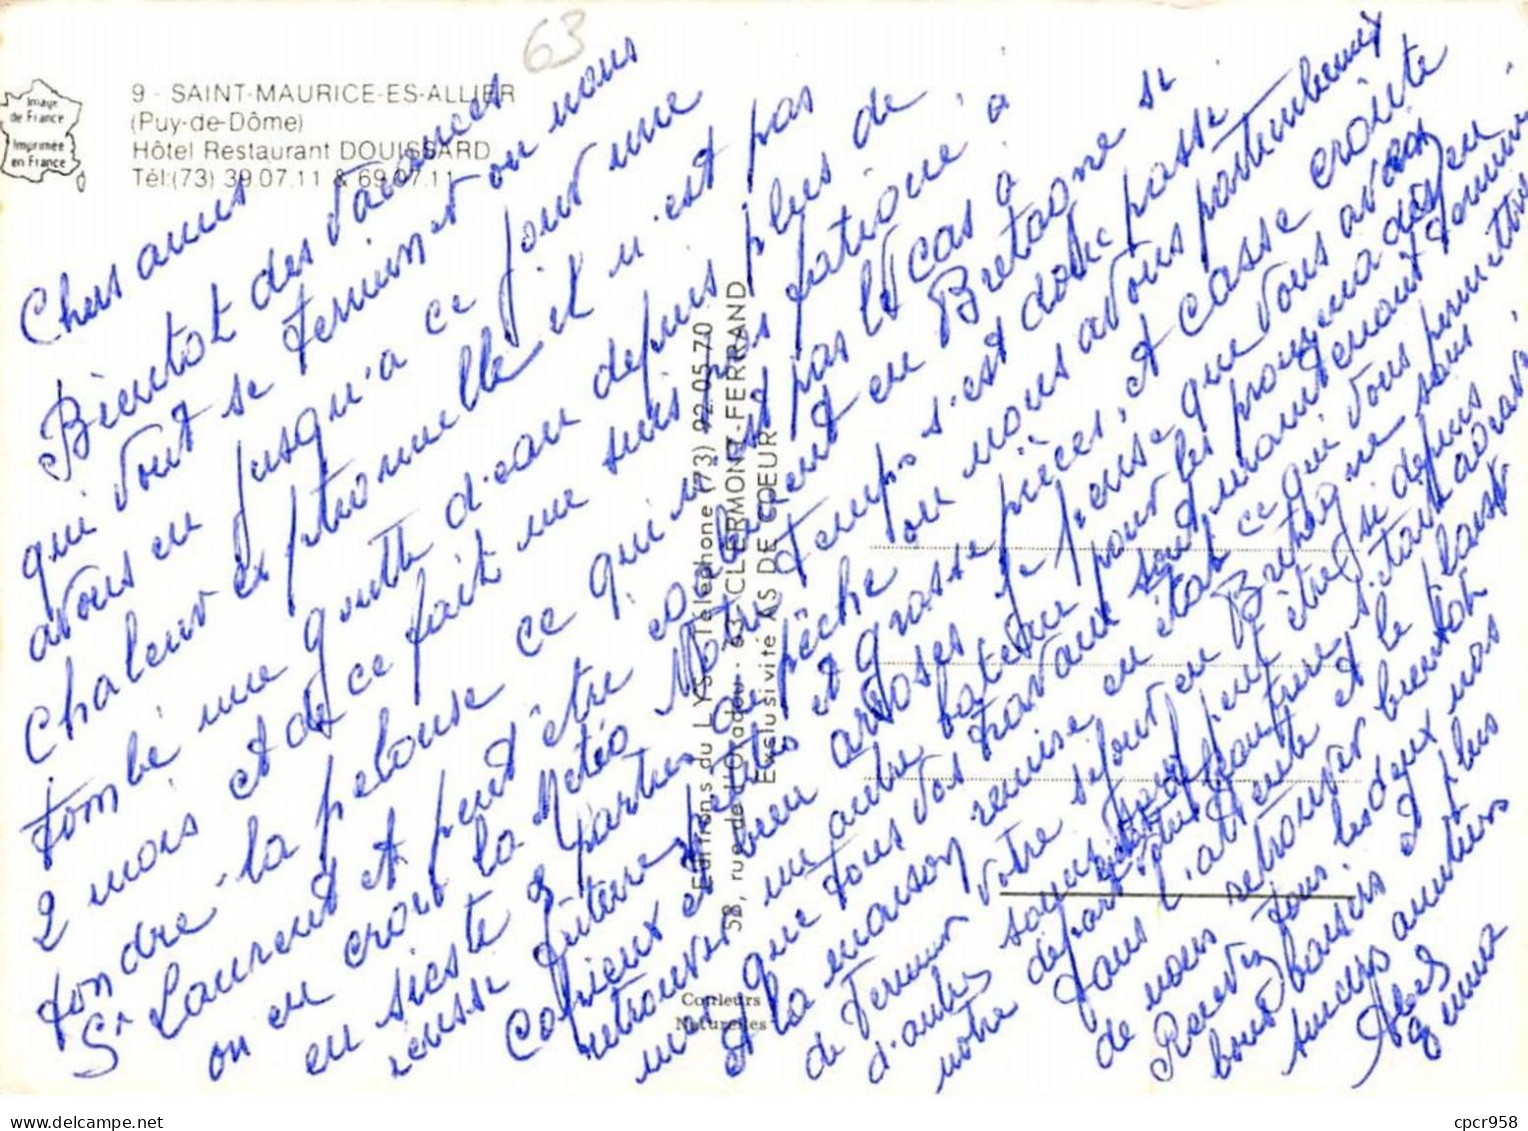 63
9 - SAINT-MAURICE-ES-ALLIER
(Puy-de-Dôme)
Hôtel Restaurant DOUISSARD
Tél:(73) 39.07.11 & 69.07.11
Image
de France
Imprimée
en France
Chers amis
Bientot des vacances
qui vont se terminer ou nous
avons eu jusqu'a ce jour une
chaleur exptionnelle il n'est pas
tombé une goutte d'eau depuis plus de
2 mois et de ce fait une suis pas fatigué à
tondre la pelouse ce qui n'est pas le cas a
St Laurent et peut être également en Bretagne si
on en croit la Météo Notre temps s'est donc passé
en sieste parties de pêche ou nous avons
et grosse prises, et casse croûte
bien arrosés je pense que vous avez
retrouver un autre bateau pour les promenades en
mer que tous vos travaux sont maintenant terminé
et la maison remise en état ce qui vous permettra
de terminer votre séjour en Bretagne sans
d'autres soucis
notre départ
Dans l'attente et le plaisir
de nous retrouver bientôt
Recevez tous les deux nos
bons baisers et plus
sincères amitiés
Editions du LYS - Téléphone (73) 92.05.70
58, rue de l'Oradou - 63-CLERMONT-FERRAND
Exclusivité AS DE COEUR
Couleurs
Naturelles
cpcr958